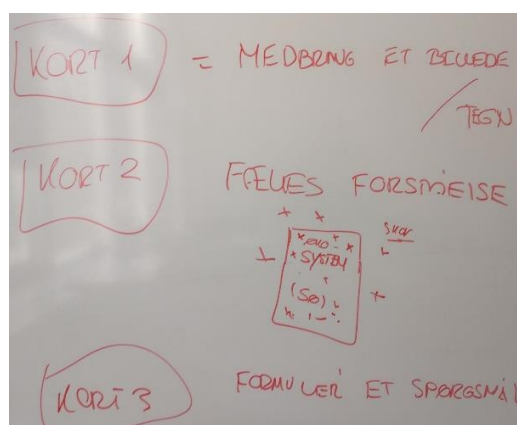 KORT 1 = MEDBRING ET BILLEDE
/ TEGN
KORT 2 FÆLLES FORSTÅELSE
SKOV
SYSTEM
(SØ)
KORT 3 FORMULER ET SPØRGSMÅL